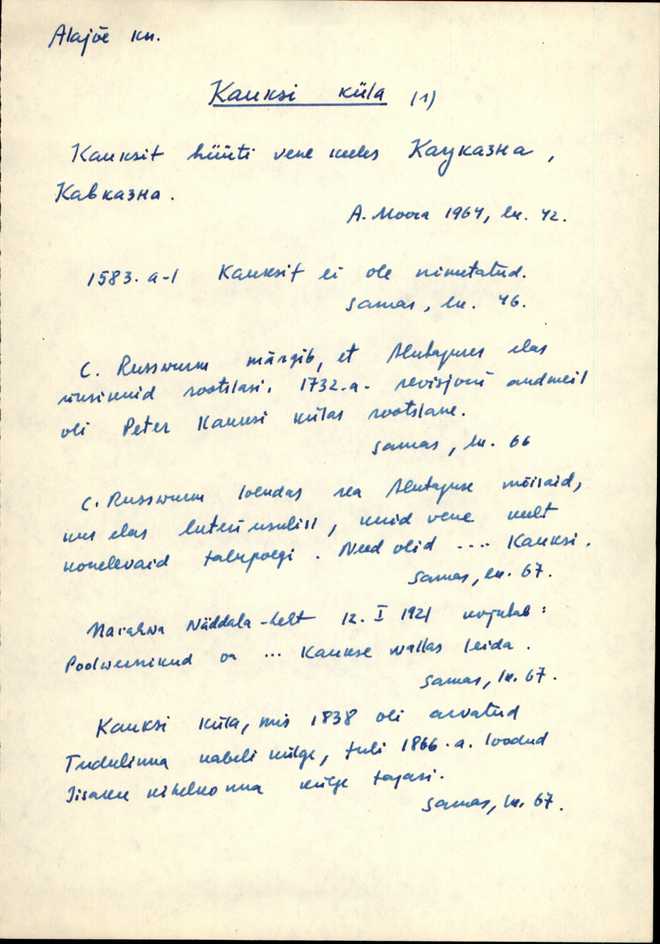 Alajõe kn.
Kauksi küla (1)
Kauksit hüüti vene keeles Каукaзна,
Кавказна.
A. Moora 1964, lk. 42.
1583. a-l Kauksit ei ole nimetatud.
Samas, lk. 46.
C. Russwurm märgib, et Alutaguses elas
üksikuid rootslasi. 1732. a. revisjoni andmeil
oli Peter Kauksi külas rootslane.
Samas, lk. 66
C. Russwurm loendas rea Alutaguse mõisaid,
kus elas luteri usulisi, kuid vene keelt
kõnelevaid talupoegi. Need olid ... Kauksi.
Samas, lk. 67.
Narahwa Näddala-leht 12. I 1921 kirjutab:
Poolwernikud on ... Kaukse wallas leida.
Samas, lk. 67.
Kauksi küla, mis 1838 oli arvatud
Tudulinna kabeli külge, tuli 1866. a. loodud
Iisaku kihelkonna külge tagasi.
Samas, lk. 67.